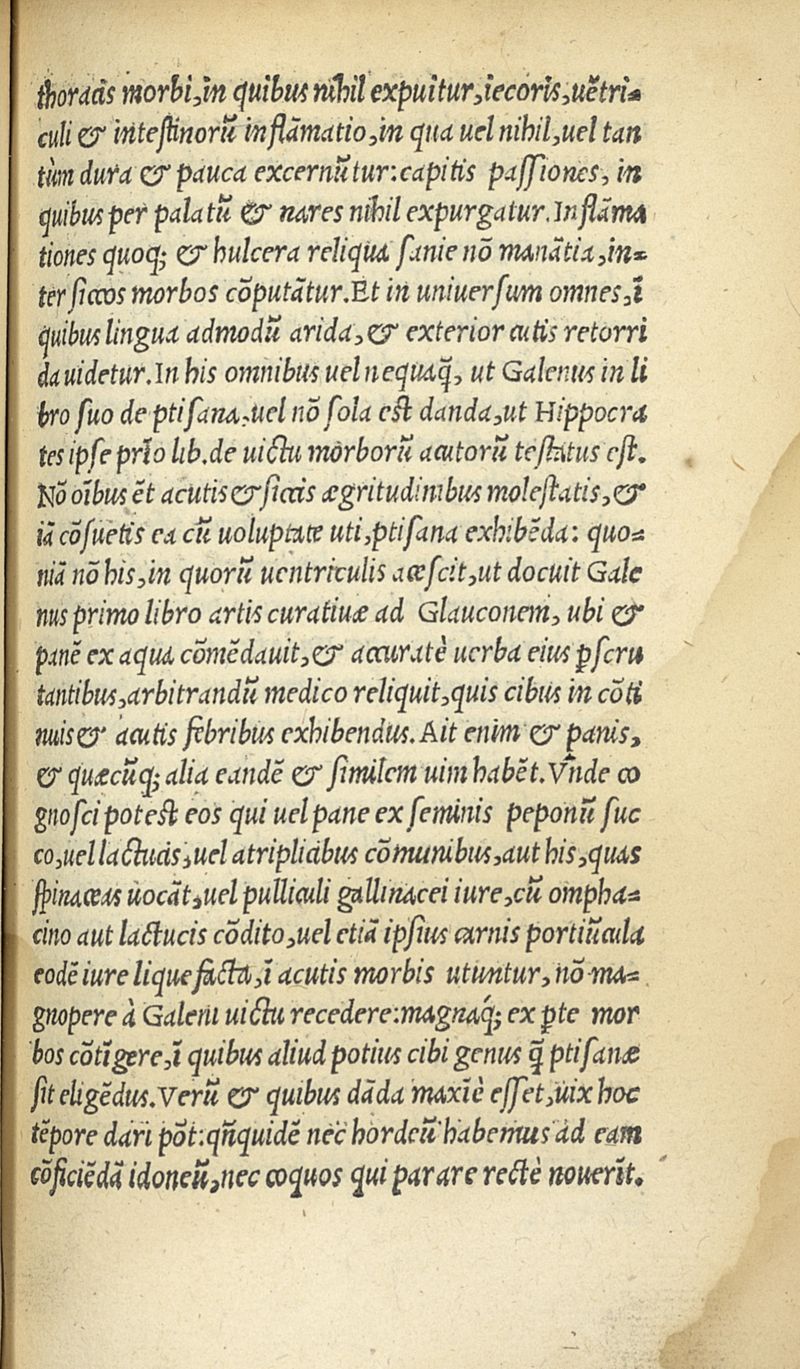 thoracis morbi,in quibus nihil expuitur,iecoris,uẽtri-
culi & intestinorũ inflãmatio,in qua uel nihil,uel tan
tùm dura & pauca excernũtur:capitis passiones, in
quibus per palatũ & nares nihil expurgatur.Inflãma
tiones quoq; & hulcera reliqua sanie nõ manãtia,in-
ter siccos morbos cõputãtur.Et in uniuersum omnes,ĩ
quibus lingua admodũ arida,& exterior cutis retorri
da uidetur.In his omnibus uel nequaq̃, ut Galenus in li
bro suo de ptisana,uel nõ sola est danda,ut Hippocra
tes ipse prĩo lib.de uictu morborũ acutorũ testatus est.
Nõ oĩbus ẽt acutis & siccis ægritudinibus molestatis,&
iã cõsuetis ea cũ uoluptate uti,ptisana exhibẽda: quo-
niã nõ his,in quorũ uentriculis acescit,ut docuit Gale
nus primo libro artis curatiuæ ad Glauconem, ubi &
panẽ ex aqua cõmẽdauit,& accuratè uerba eius ꝑscru
tantibus,arbitrandũ medico reliquit,quis cibus in cõti
nuis & acutis febribus exhibendus.Ait enim & panis,
& quæcũq; alia eandẽ & similem uim habẽt.Vnde co
gnosci potest eos qui uel pane ex seminis peponũ suc
co,uel lactucis,uel atriplicibus cõmunibus,aut his,quas
spinaceas uocãt,uel pulliculi gallinacei iure,cũ ompha-
cino aut lactucis cõdito,uel etiã ipsius carnis portiũcula
eodẽ iure liquefacta,ĩ acutis morbis utuntur,nõ ma-
gnopere à Galeni uictu recedere:magnaq́; ex ꝑte mor
bos cõtĩgere,ĩ quibus aliud potius cibi genus q̃ ptisanæ
sit eligẽdus.Verũ & quibus dãda maxĩè esset,uix hoc
tẽpore dari põt:qñquidẽ nec hordeũ habemus ad eam
cõficiẽdã idoneũ,nec coquos qui parare rectè nouerĩt.